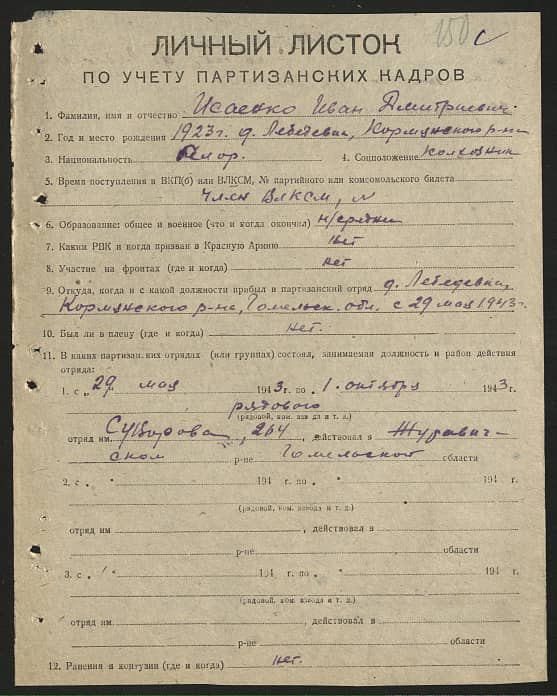 150 с
ЛИЧНЫЙ ЛИСТОК
ПО УЧЕТУ ПАРТИЗАНСКИХ КАДРОВ
1. Фамилия, имя и отчество Исаенко Иван Дмитриевич
2. Год и место рождения 1923 г. д. Лебедевка, Кормянского р-на
3. Национальность белор. 4. Соцположение колхозник
5. Время поступления в ВКП(б) или ВЛКСМ, № партийного или комсомольского билета
Член ВЛКСМ, №
6. Образование: общее и военное (что и когда окончил) н/средн
7. Каким РВК и когда призван в Красную Армию нет
8. Участие на фронтах (где и когда) нет
9. Откуда, когда и с какой должности прибыл в партизанский отряд д. Лебедевка,
Кормянского р-на, Гомельск. обл. с 29 мая 1943 г.
10. Был ли в плену (где и когда) нет.
11. В каких партизан.ких отрядах (или группах) состоял, занимаемая должность и район действия
отряда:
1. с „29" мая 1943 г. по „1. октября 1943 г.
рядового
(рядовой, ком. взвода и т. д.)
отряд им. Суворова, 264, действовал в Журавич-
ском р-не Гомельской области
2. с „ " 194 г. по „ " 194 г.
(рядовой, ком. взвода и т. д.)
отряд им. , действовал в
р-не области
3. с „ " 194 г. по „ " 194 г.
(рядовой, ком. взвода и т. д.)
отряд им. , действовал в
р-не области
12. Ранения и контузии (где и когда) нет.